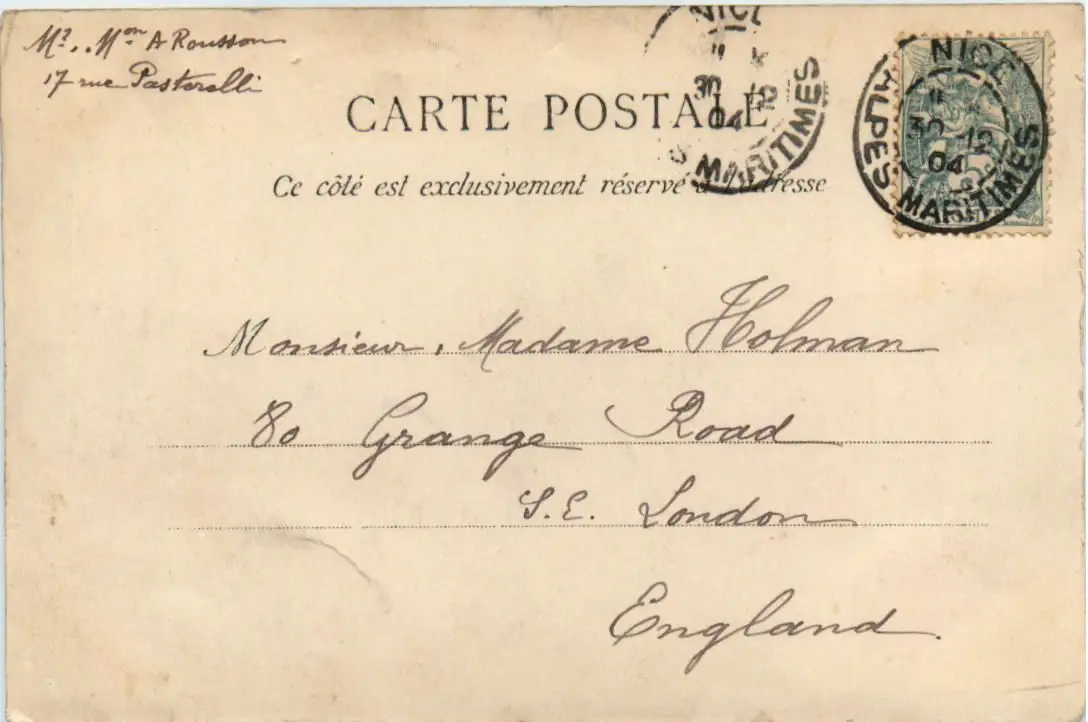 Mr. Mon A Rousson
17 rue Pastorelli
CARTE POSTALE
Ce côté est exclusivement réservé à l'adresse
NICE
30 12
04
MARITIMES
NICE
30 12
04
ALPES MARITIMES
Monsieur, Madame Holman
80 Grange Road
S.E. London
England.